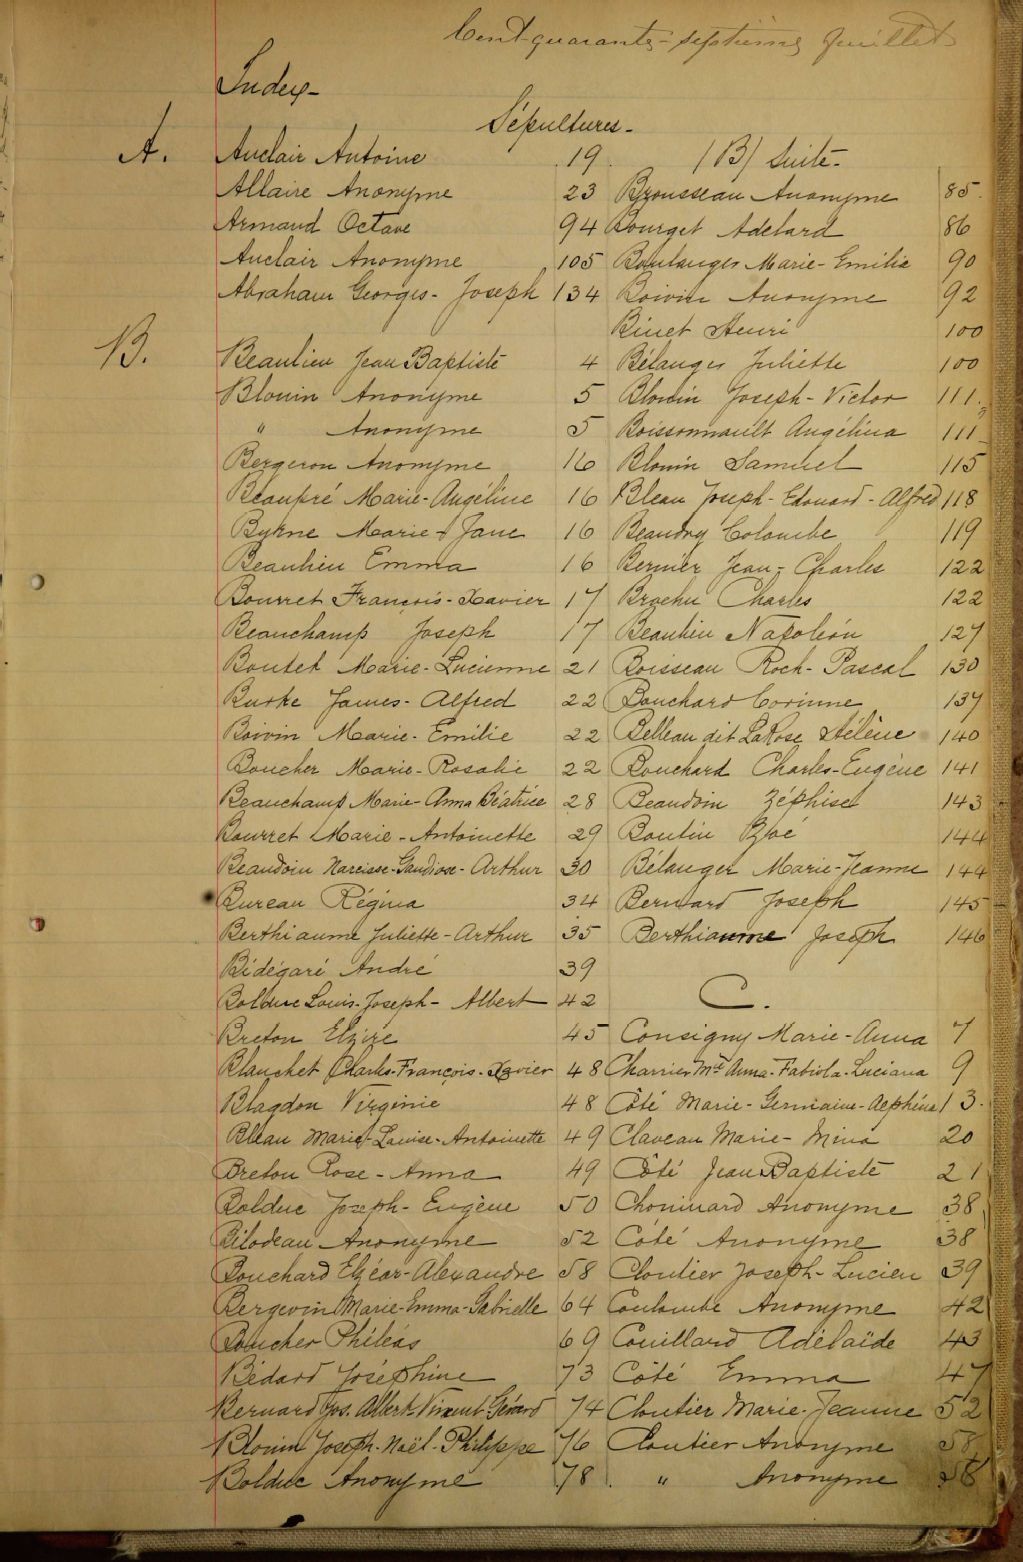 Cent-quarante-septième feuillet
Index-
Sépultures-
A.
Auclair Antoine 19
Allaire Anonyme 23
Armand Octave 94
Auclair Anonyme 105
Abraham Georges-Joseph 134
B.
Beaulieu Jean Baptiste 4
Blouin Anonyme 5
" Anonyme 5
Bergeron Anonyme 16
Beaupré Marie-Angéline 16
Byrne Marie-Jane 16
Beaulieu Emma 16
Bourret François-Xavier 17
Beauchamp Joseph 17
Boutet Marie-Lucienne 21
Burke James-Alfred 22
Boivin Marie-Emilie 22
Boucher Marie-Rosalie 22
Beauchamp Marie-Anna Béatrice 28
Bourret Marie-Antoinette 29
Beaudoin Narcisse-Gaudiose-Arthur 30
Bureau Régina 34
Berthiaume Juliette-Arthur 35
Bidégaré André 39
Bolduc Louis-Joseph-Albert 42
Breton Elzire 45
Blanchet Charles-François-Xavier 48
Blagdon Virginie 48
Bleau Marie-Louise-Antoinette 49
Breton Rose-Anna 49
Bolduc Joseph-Eugène 50
Bilodeau Anonyme 52
Bouchard Elzéar-Alexandre 58
Bergevin Marie-Emma-Gabrielle 64
Boucher Philéas 69
Bédard Joséphine 73
Bernard Jos. Albert-Vincent-Gérard 74
Blouin Joseph-Noël-Philippe 76
Bolduc Anonyme 78
(B) suite-
Brousseau Anonyme 85
Bourget Adelard 86
Boulanger Marie-Emilie 90
Boivin Anonyme 92
Binet Henri 100
Bélanger Juliette 100
Blouin Joseph-Victor 111
Boissonnault Angélina 111
Blouin Samuel 115
Bleau Joseph-Edouard-Alfred 118
Beaudry Colombe 119
Bernier Jean-Charles 122
Brochu Charles 122
Beaulieu Napoléon 127
Boisseau Roch-Pascal 130
Bouchard Corinne 137
Belleau dit LaRose Hélène 140
Bouchard Charles-Eugène 141
Beaudoin Zéphise 143
Boutin Zoé 144
Bélanger Marie-Jeanne 144
Bernard Joseph 145
Berthiaume Joseph 146
C.
Consigny Marie-Anna 7
Charrier Mie Anna-Fabiola-Luciana 9
Côté Marie-Germaine-Delphine 13
Claveau Marie-Mina 20
Côté Jean Baptiste 21
Chouinard Anonyme 38
Côté Anonyme 38
Cloutier Joseph-Lucien 39
Coulombe Anonyme 42
Couillard Adélaïde 43
Côté Emma 47
Cloutier Marie-Jeanne 52
Cloutier Anonyme 58
" Anonyme 58